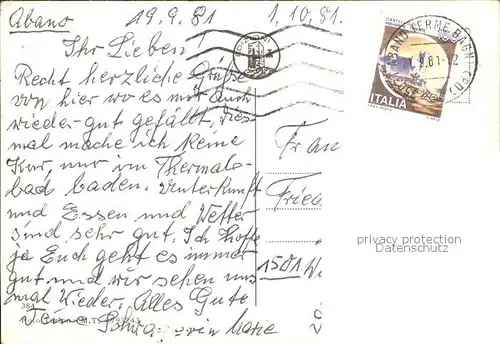 Abano 19.9.81 1.10.81.
Ihr Lieben
Recht herzliche Grüße
von hier wo es mir auch
wieder gut gefällt, dies
mal mache ich keine
Kur, nur im Thermal-
bad baden. Unterkunft
und Essen und Wetter
sind sehr gut. Ich hoffe
ja Euch geht es immer
gut und wir sehen uns
mal Wieder. Alles Gute
Schwägerin Marie
384
ITALIA
ABANO TERME BAGNI (PD)
Fran
Frie
1501
privacy protection